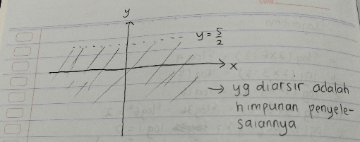 y
y = 5/2
x
→ yg diarsir adalah
himpunan penyele-
saiannya